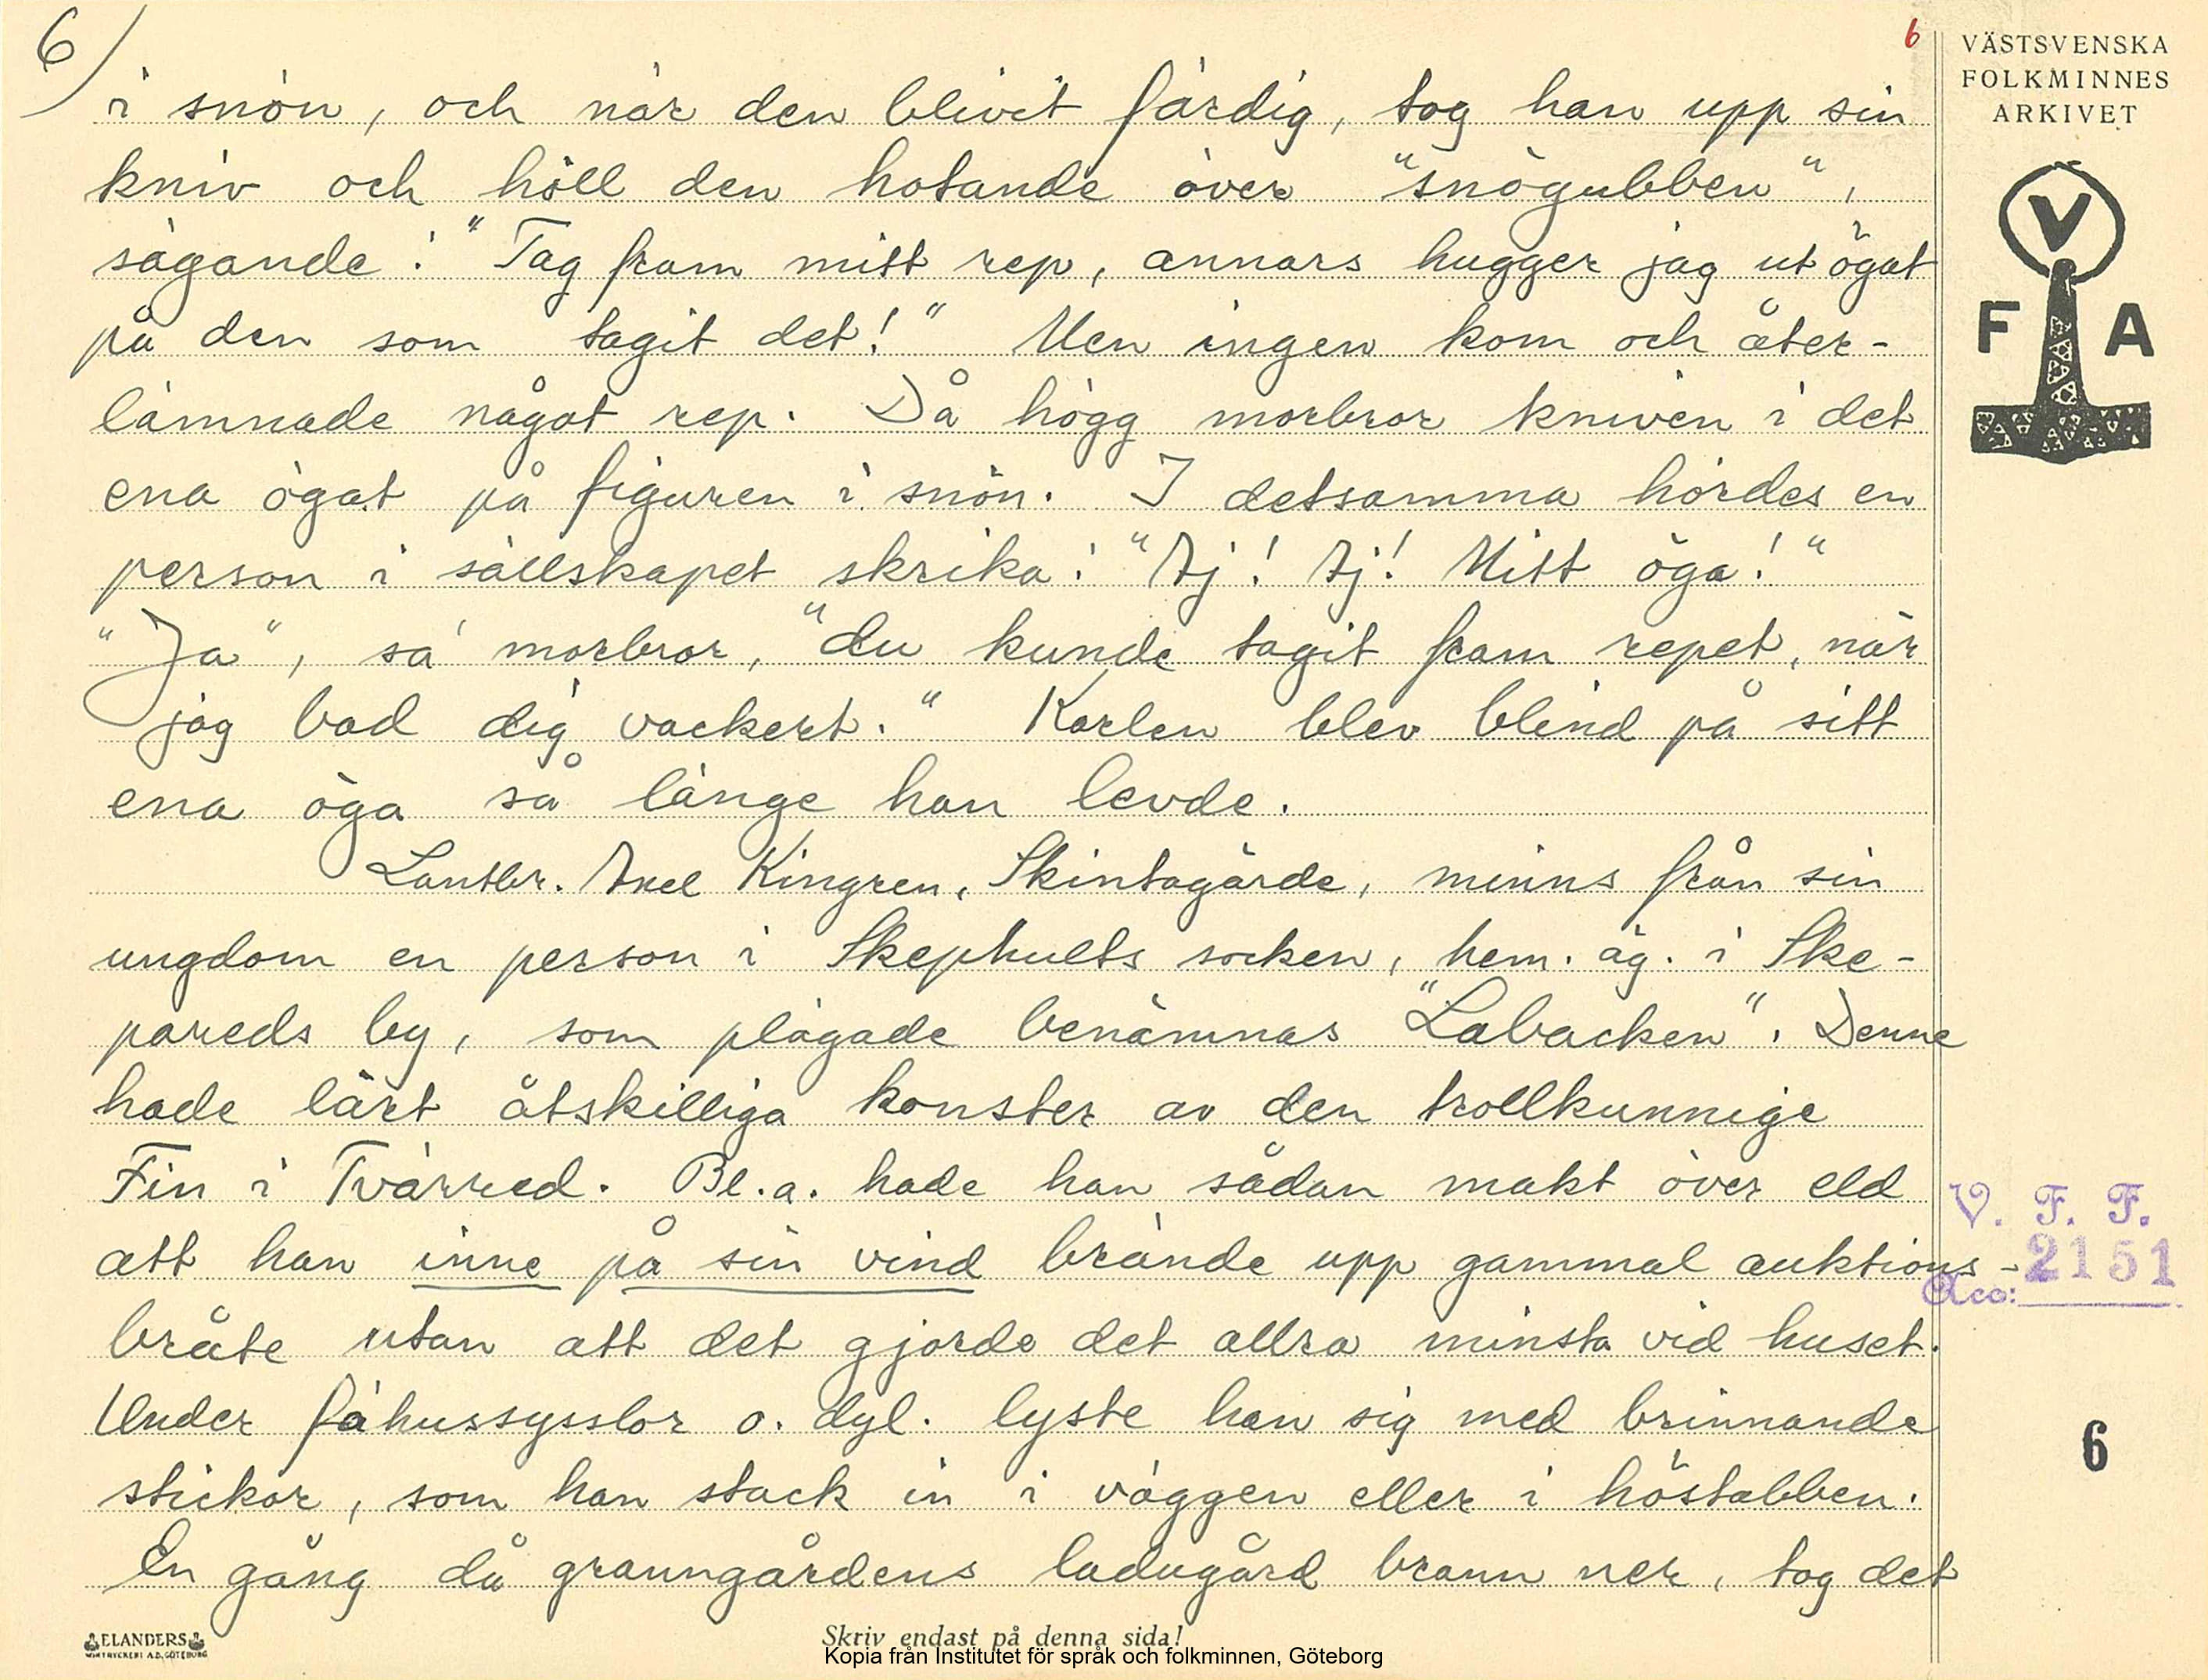 6/
6
VÄSTSVENSKA
FOLKMINNES
ARKIVET
V
F A
i snön, och när den blivit färdig, tog han upp sin
kniv och höll den hotande över "snögubben",
sägande: "Tag fram mitt rep, annars hugger jag ut ögat
på den som tagit det!" Men ingen kom och åter-
lämnade något rep. Då högg morbror kniven i det
ena ögat på figuren i snön. I detsamma hördes en
person i sällskapet skrika: "Aj! Aj! Mitt öga!"
"Ja", sa' morbror, "du kunde tagit fram repet, när
jag bad dig vackert." Karlen blev blind på sitt
ena öga så länge han levde.
Lantbr. Axel Kingren, Skintagärde, minns från sin
ungdom en person i Skephults socken, hem. äg. i Ske-
pareds by, som plägade benämnas "Labacken". Denne
hade lärt åtskilliga konster av den trollkunnige
Fin i Tvärred. Bl.a. hade han sådan makt över eld
att han inne på sin vind brände upp gammal auktions-
bråte utan att det gjorde det allra minsta vid huset.
Under fähussysslor o. dyl. lyste han sig med brinnande
stickor, som han stack in i väggen eller i höstabben.
En gång då granngårdens ladugård brann ner, tog det
V. F. F.
Acc: 2151
6
ELANDERS
Skriv endast på denna sida!
Kopia från Institutet för språk och folkminnen, Göteborg